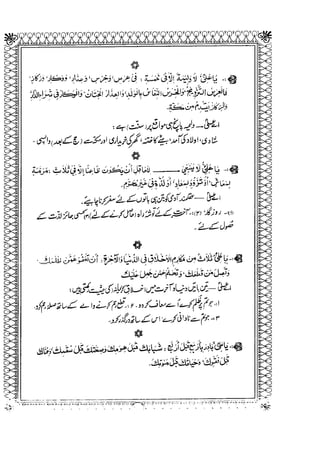 يَا عَلِيُّ لَا وَلِيمَةَ إِلَّا فِي خَمْسَةٍ : فِي عِرْسٍ وَخُرْسٍ وَعِذَارٍ وَوِكَارٍ وَرِكَازٍ
فَالْعِرْسُ التَّزْوِيجُ وَالْخُرْسُ النِّفَاسُ بِالْوَلَدِ وَالْعِذَارُ الْخِتَانُ وَالْوِكَارُ فِي شِرَاءِ الدَّارِ
وَالرِّكَازُ يَقْدَمُ مِنْ مَكَّةَ
اے علیؑ — ولیمہ پانچ ہی مواقع پر (سنت) ہے :
شادی، اولاد کی آمد، بیٹے کا ختنہ، گھر کی خریداری اور مکہ سے (حج کے بعد) واپسی
يَا عَلِيُّ لَا يَنْبَغِي لِلْعَاقِلِ أَنْ يَكُونَ ظَاعِنًا إِلَّا فِي ثَلَاثٍ : مَرَمَّةٍ
لِمَعَاشٍ أَوْ تَزَوُّدٍ لِمَعَادٍ أَوْ لَذَّةٍ فِي غَيْرِ مُحَرَّمٍ
اے علیؑ — عقلمند آدمی کو تین ہی باتوں کے لئے سفر کرنا چاہیے۔
حصول کے لئے۔
يَا عَلِيُّ ثَلَاثٌ مِنْ مَكَارِمِ الْأَخْلَاقِ فِي الدُّنْيَا وَالْآخِرَةِ : أَنْ تَعْفُوَ عَمَّنْ ظَلَمَكَ
وَتَصِلَ مَنْ قَطَعَكَ وَتَحْلُمَ عَمَّنْ جَهِلَ عَلَيْكَ
اے علیؑ — تین باتیں دنیا و آخرت میں
۱۔ جو تم پر ظلم کرے اُسے معاف کر دو۔ ۲۔ قطع رحم کرنے والے کے ساتھ صلۂ رحم کرو۔
۳۔ جو تم سے نادانی کرے اس کے ساتھ درگذر کرو۔
يَا عَلِيُّ بَادِرْ بِأَرْبَعٍ قَبْلَ أَرْبَعٍ : شَبَابِكَ قَبْلَ هَرَمِكَ وَصِحَّتِكَ قَبْلَ سُقْمِكَ وَغِنَاكَ
قَبْلَ فَقْرِكَ وَحَيَاتِكَ قَبْلَ مَوْتِكَ